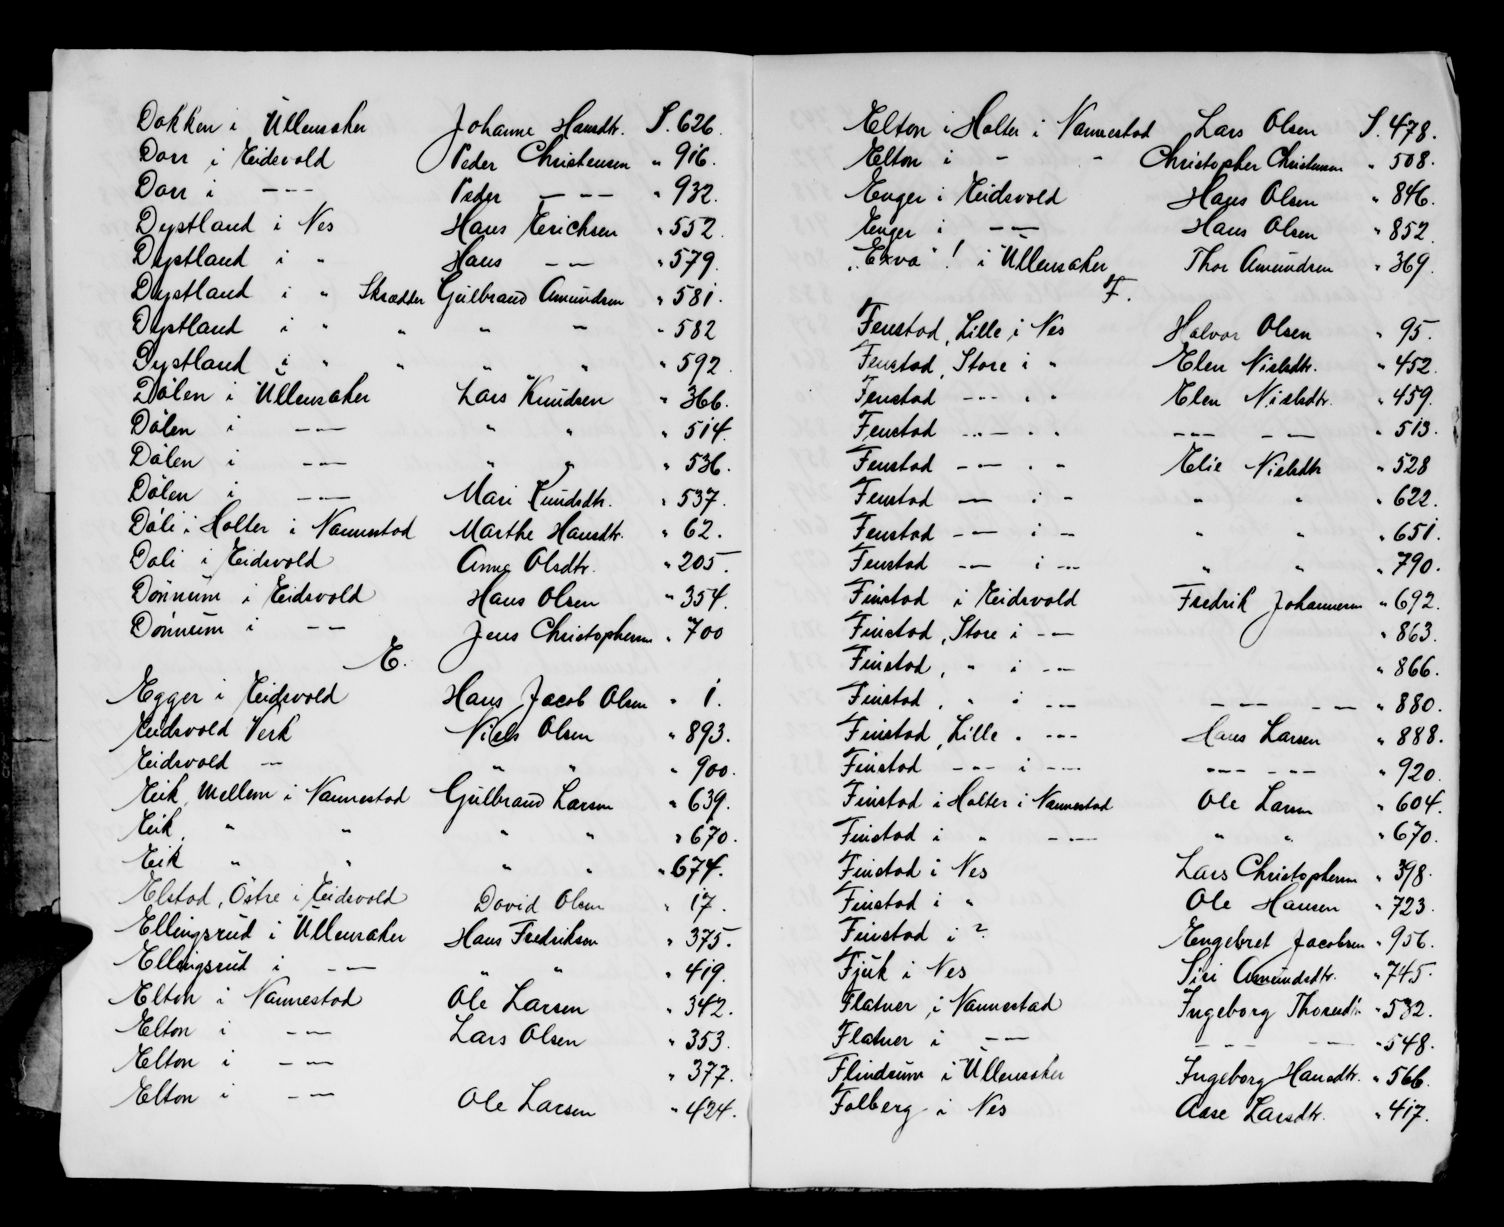 Dokken i Ullensaker Johanne Hansdtr. S. 626.
Dorr i Eidsvold Peder Christensen " 916.
Dorr i — — — Peder — — — " 932.
Dystland i Nes Hans Erichsen " 552.
Dystland i " Hans — — " 579.
Dystland i " Skrædder Gulbrand Amundsen " 581.
Dystland i " " " " " 582
Dystland i " " " " " 592.
Dølen i Ullensaker Lars Knudsen " 366.
Dølen i — — — " " " 514.
Dølen i — — — " " " 536.
Dølen i — — — Mari Knudsdtr. " 537.
Døli i Holter i Nannestad Marthe Hansdtr. " 62.
Doli i Eidsvold Anne Olsdtr. " 205.
Dønnum i Eidsvold Hans Olsen " 354.
Dønnum i — — Jens Christophersen " 700
E.
Egger i Eidsvold Hans Jacob Olsen " 1.
Eidsvold Verk Niels Olsen " 893.
Eidsvold — " " " 900.
Eik, Mellem i Nannestad Gulbrand Larsen " 639.
Eik, " " " " " 670.
Eik " " " " " 674.
Elstad, Østre i Eidsvold David Olsen " 17.
Ellingsrud i Ullensaker Hans Fredriksen " 375.
Ellingsrud i — — " " " 419.
Elton i Nannestad Ole Larsen " 342.
Elton i — — Lars Olsen " 353.
Elton i — — " 377.
Elton i — — Ole Larsen " 424.
Elton i Holter i Nannestad Lars Olsen S. 478.
Elton i - - Christopher Christensen " 508.
Enger i Eidsvold Hans Olsen " 846.
Enger i — — Hans Olsen " 852.
"Exvo"! i Ullensaker Thor Amundsen " 369.
F.
Fenstad, Lille, i Nes Halvor Olsen " 95.
Fenstad, Store i " Elen Nielsdtr. " 452.
Fenstad — — — i " Elen Nielsdtr. " 459.
Fenstad — — — " " — — — — — — " 513.
Fenstad — — " " Elie Nielsdtr " 528
Fenstad — — i - " " " 622.
Fenstad — — i - " " " 651.
Fenstad — — i — " " " 790.
Finstad i Eidsvold Fredrik Johannesen " 692.
Finstad, Store i — — " 863.
Finstad, " i — — " 866.
Finstad, " i — — — — — — — " 880.
Finstad, Lille " — — Hans Larsen " 888.
Finstad — — — i — — — — — — — — " 920.
Finstad i Holter i Nannestad Ole Larsen " 604.
Finstad i " — — — " " " 670.
Finstad i Nes Lars Christophersen " 398.
Finstad i " Ole Hansen " 723.
Finstad i ? Engebret Jacobsen " 956.
Fjuk i Nes Siri Amundsdtr. " 745.
Flatner, i Nannestad Ingeborg Thoresdtr. " 532.
Flatner i — — — — — — — " 548.
Flindrum i Ullensaker Ingeborg Hansdtr. " 566.
Folberg i Nes Aase Larsdtr. " 417.